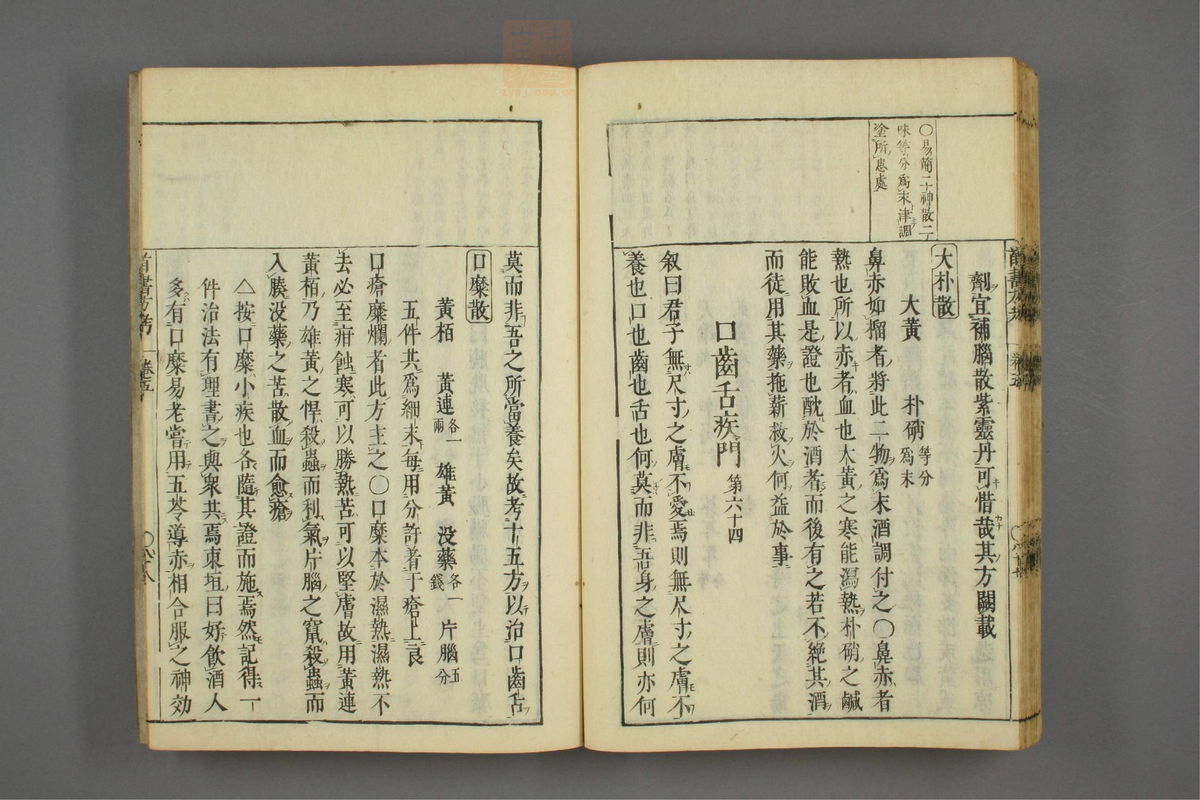 ○易簡二十神散二
味等分爲末津調
塗所患處
劑宜補腦散紫靈丹可惜哉其方闕載
大朴散
大黃　朴硝等分爲末
鼻赤如榴者將此二物爲末酒調付之○鼻赤者
熱也所以赤者血也大黃之寒能瀉熱朴硝之鹹
能敗血是證也酖於酒者而後有之若不絶其酒
而徒用其藥拖薪救火何益於事
口齒舌疾門第六十四
叙曰君子無尺寸之膚不愛焉則無尺寸之膚不
養也口也齒也舌也何莫而非吾身之膚則亦何
莫而非吾之所當養矣故考十五方以治口齒舌
口糜散
黃栢　黃連各一兩　雄黃　没藥各一錢　片腦五分
五件共爲細末每用分許著于瘡上良
口瘡糜爛者此方主之○口糜本於濕熱濕熱不
去必至疳蝕寒可以勝熱苦可以堅膚故用黃連
黃栢乃雄黃之悍殺蟲而利氣片腦之竄殺蟲而
入腠没藥之苦散血而愈瘡
△按口糜小疾也各隨其證而施焉然記得一
件治法有理書之與衆共焉東垣曰好飲酒人
多有口糜易老嘗用五苓導赤相合服之神効
首書方考　卷五